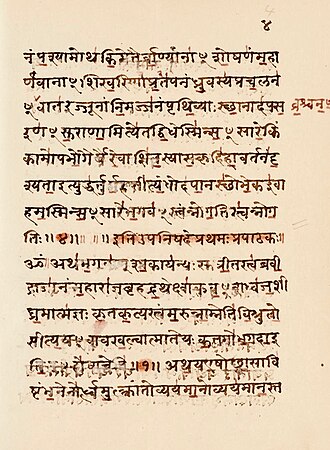 ४
नं पश्यामोथ किमेतैर्वाण्यानाꣳ शोषणं महा
र्णवानाꣳ शिखरिणां प्रपतनं ध्रुवस्य प्रचलनं
निमज्जनं पृथिव्याः स्थानादपस
रणꣳ सुराणामित्येतद्विधेस्मिन्सꣳसारे किं
कामोपभोगैर्यैरेवाशितस्यासकृदिहावर्तनं दृ
श्यता इत्युद्धर्तुमर्हसीत्यंधोदपानस्थो भेक इवा
हमस्मिन्सꣳसारे भगवꣳस्त्वन्नो गतिस्त्वन्नो ग
तिः ॥४॥ इति उपनिषदि प्रथमः प्रपाठकः
ॐ अथ भगवान् शाकायन्यः सुप्रीतस्त्वब्रवी
द्राजानं महाराज बृहद्रथेक्ष्वाकुवꣳशध्वजशी
र्घमात्मज्ञः कृतकृत्यस्त्वं मरुन्नाम्नेति विश्रुतो
सीत्ययं वाव खल्वात्मा ते यः कतमो भगवा इ
॥१॥ अथ य एषोच्छ्वासावि
ष्टंभनेनोर्ध्वमुत्क्रांतो व्ययमानोव्ययमानस्त